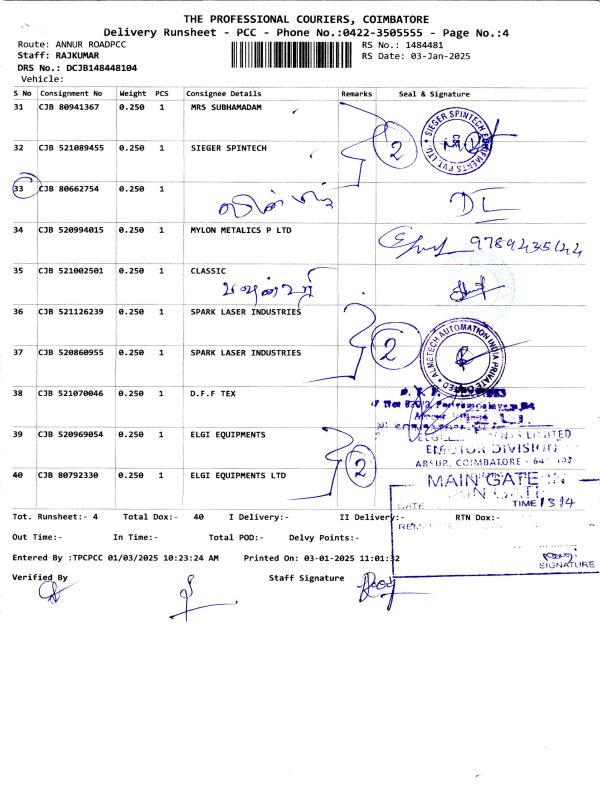 THE PROFESSIONAL COURIERS, COIMBATORE
Delivery Runsheet - PCC - Phone No.:0422-3505555 - Page No.:4
Route: ANNUR ROADPCC
RS No.: 1484481
Staff: RAJKUMAR
RS Date: 03-Jan-2025
DRS No.: DCJB148448104
Vehicle:
S No Consignment No Weight PCS Consignee Details Remarks Seal & Signature
31 CJB 80941367 0.250 1 MRS SUBHAMADAM
32 CJB 521089455 0.250 1 SIEGER SPINTECH
2
SIEGER SPINTECH EQUIPMENTS PVT LTD
33 CJB 80662754 0.250 1
34 CJB 520994015 0.250 1 MYLON METALICS P LTD
35 CJB 521002501 0.250 1 CLASSIC
36 CJB 521126239 0.250 1 SPARK LASER INDUSTRIES
37 CJB 520860955 0.250 1 SPARK LASER INDUSTRIES
2
ALMETECH AUTOMATION INDIA PRIVATE LIMITED
38 CJB 521070046 0.250 1 D.F.F TEX
39 CJB 520969054 0.250 1 ELGI EQUIPMENTS
40 CJB 80792330 0.250 1 ELGI EQUIPMENTS LTD
2
LIMITED
DIVISION
ARSUR, COIMBATORE - 641
MAIN GATE IN
DATE TIME 1314
SIGNATURE
Tot. Runsheet:- 4 Total Dox:- 40 I Delivery:- II Delivery:- RTN Dox:-
Out Time:- In Time:- Total POD:- Delvy Points:-
Entered By :TPCPCC 01/03/2025 10:23:24 AM Printed On: 03-01-2025 11:01:32
Verified By Staff Signature